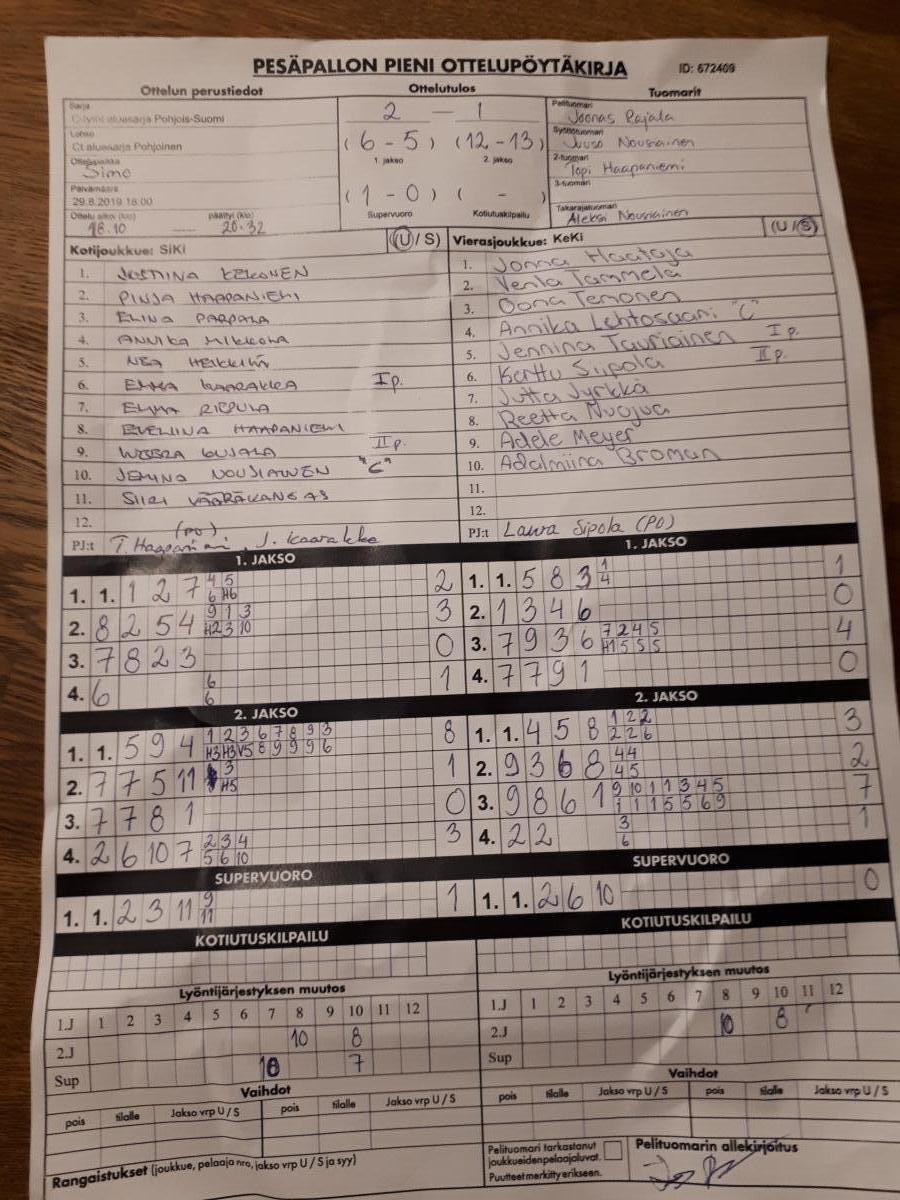 PESÄPALLON PIENI OTTELUPÖYTÄKIRJA ID: 672409
Ottelun perustiedot
Sarja
aluesarja Pohjois-Suomi
Lohko
C1 aluesarja Pohjoinen
Ottelupaikka
Simo
Päivämäärä
29.8.2019 18:00
Ottelu alkoi (klo) päättyi (klo)
18.10 20.32
Ottelutulos
2 - 1
(6-5) (12-13)
1. jakso 2. jakso
(1-0) ( - )
Supervuoro Kotiutuskilpailu
Tuomarit
Pelituomari
Joonas Rajala
Syöttötuomari
Juuso Nousiainen
2-tuomari
Topi Haapaniemi
3-tuomari
Takarajatuomari
Aleksi Nousiainen
Kotijoukkue: SiKi (U / S)
1. JUSTINA KEKONEN
2. PINJA HAAPANIEMI
3. ELINA PARPALA
4. ANNIKA MIKKOLA
5. NEA HEIKKILÄ
6. EMMA KAARAKKA I p.
7. ELINA RIEPULA
8. EVELIINA HAAPANIEMI
9. KUJALA II p.
10. JEMINA NOUSIAINEN "C"
11. SIIRI VÄÄRÄKANGAS
12.
PJ:t T. Haapaniemi (PO), J. Kaarakka
Vierasjoukkue: KeKi (U / S)
1. Jonna Haataja
2. Venla Tammela
3. Oona Temonen
4. Annika Lehtosaari "C"
5. Jennina Tauriainen I p.
6. Kerttu Siipola II p.
7. Jutta Jyrkkä
8. Reetta Nuojua
9. Adele Meyer
10. Adalmiina Broman
11.
12.
PJ:t Laura Sipola (PO)
1. JAKSO
1. 1. 1 2 7 4 5 2
6 H6
2. 8 2 5 4 9 1 3 3
H2 3 10
3. 7 8 2 3 0
4. 6 6 1
6
2. JAKSO
1. 1. 5 9 4 1 2 3 6 7 8 9 3 8
H3 H3 V5 8 9 9 9 6
2. 7 7 5 11 3 1
H5
3. 7 7 8 1 0
4. 2 6 10 7 2 3 4 3
5 6 10
SUPERVUORO
1. 1. 2 3 11 9 1
11
KOTIUTUSKILPAILU
1. JAKSO
1. 1. 5 8 3 1 1
4
2. 1 3 4 6 0
3. 7 9 3 6 7 2 4 5 4
H1 5 5 5
4. 7 7 9 1 0
2. JAKSO
1. 1. 4 5 8 1 2 2 3
2 2 6
2. 9 3 6 8 4 4 2
4 5
3. 9 8 6 1 9 10 1 1 3 4 5 7
1 1 1 5 5 6 9
4. 2 2 3 1
6
SUPERVUORO
1. 1. 2 6 10 0
KOTIUTUSKILPAILU
Lyöntijärjestyksen muutos
1.J 1 2 3 4 5 6 7 8 9 10 11 12
2.J 10 8
Sup 10 7
Vaihdot
pois tilalle Jakso vrp U / S pois tilalle Jakso vrp U / S
Rangaistukset (joukkue, pelaaja nro, jakso vrp U / S ja syy)
Lyöntijärjestyksen muutos
1.J 1 2 3 4 5 6 7 8 9 10 11 12
2.J 10 8
Sup
Vaihdot
pois tilalle Jakso vrp U / S pois tilalle Jakso vrp U / S
Pelituomari tarkastanut
joukkueidenpelaajaluvat.
Puutteet merkitty erikseen.
Pelituomarin allekirjoitus